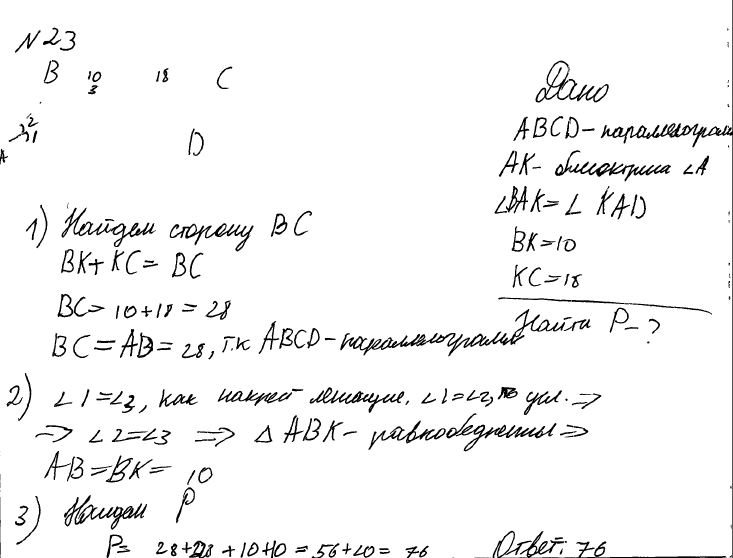 N 23
B 10 18 C
3
2
1
A D
Дано
ABCD – параллелограм
AK – биссектриса ∠A
∠BAK = ∠ KAD
BK = 10
KC = 18
Найти P – ?
1) Найдем сторону BC
BK + KC = BC
BC = 10 + 18 = 28
BC = AD = 28, т.к ABCD – параллелограмм
2) ∠1 = ∠3, как накрест лежащие. ∠1 = ∠2, по усл. ⇒
⇒ ∠2 = ∠3 ⇒ △ ABK – равнобедренный ⇒
AB = BK = 10
3) Найдем P
P = 28 + 28 + 10 + 10 = 56 + 20 = 76 Ответ: 76